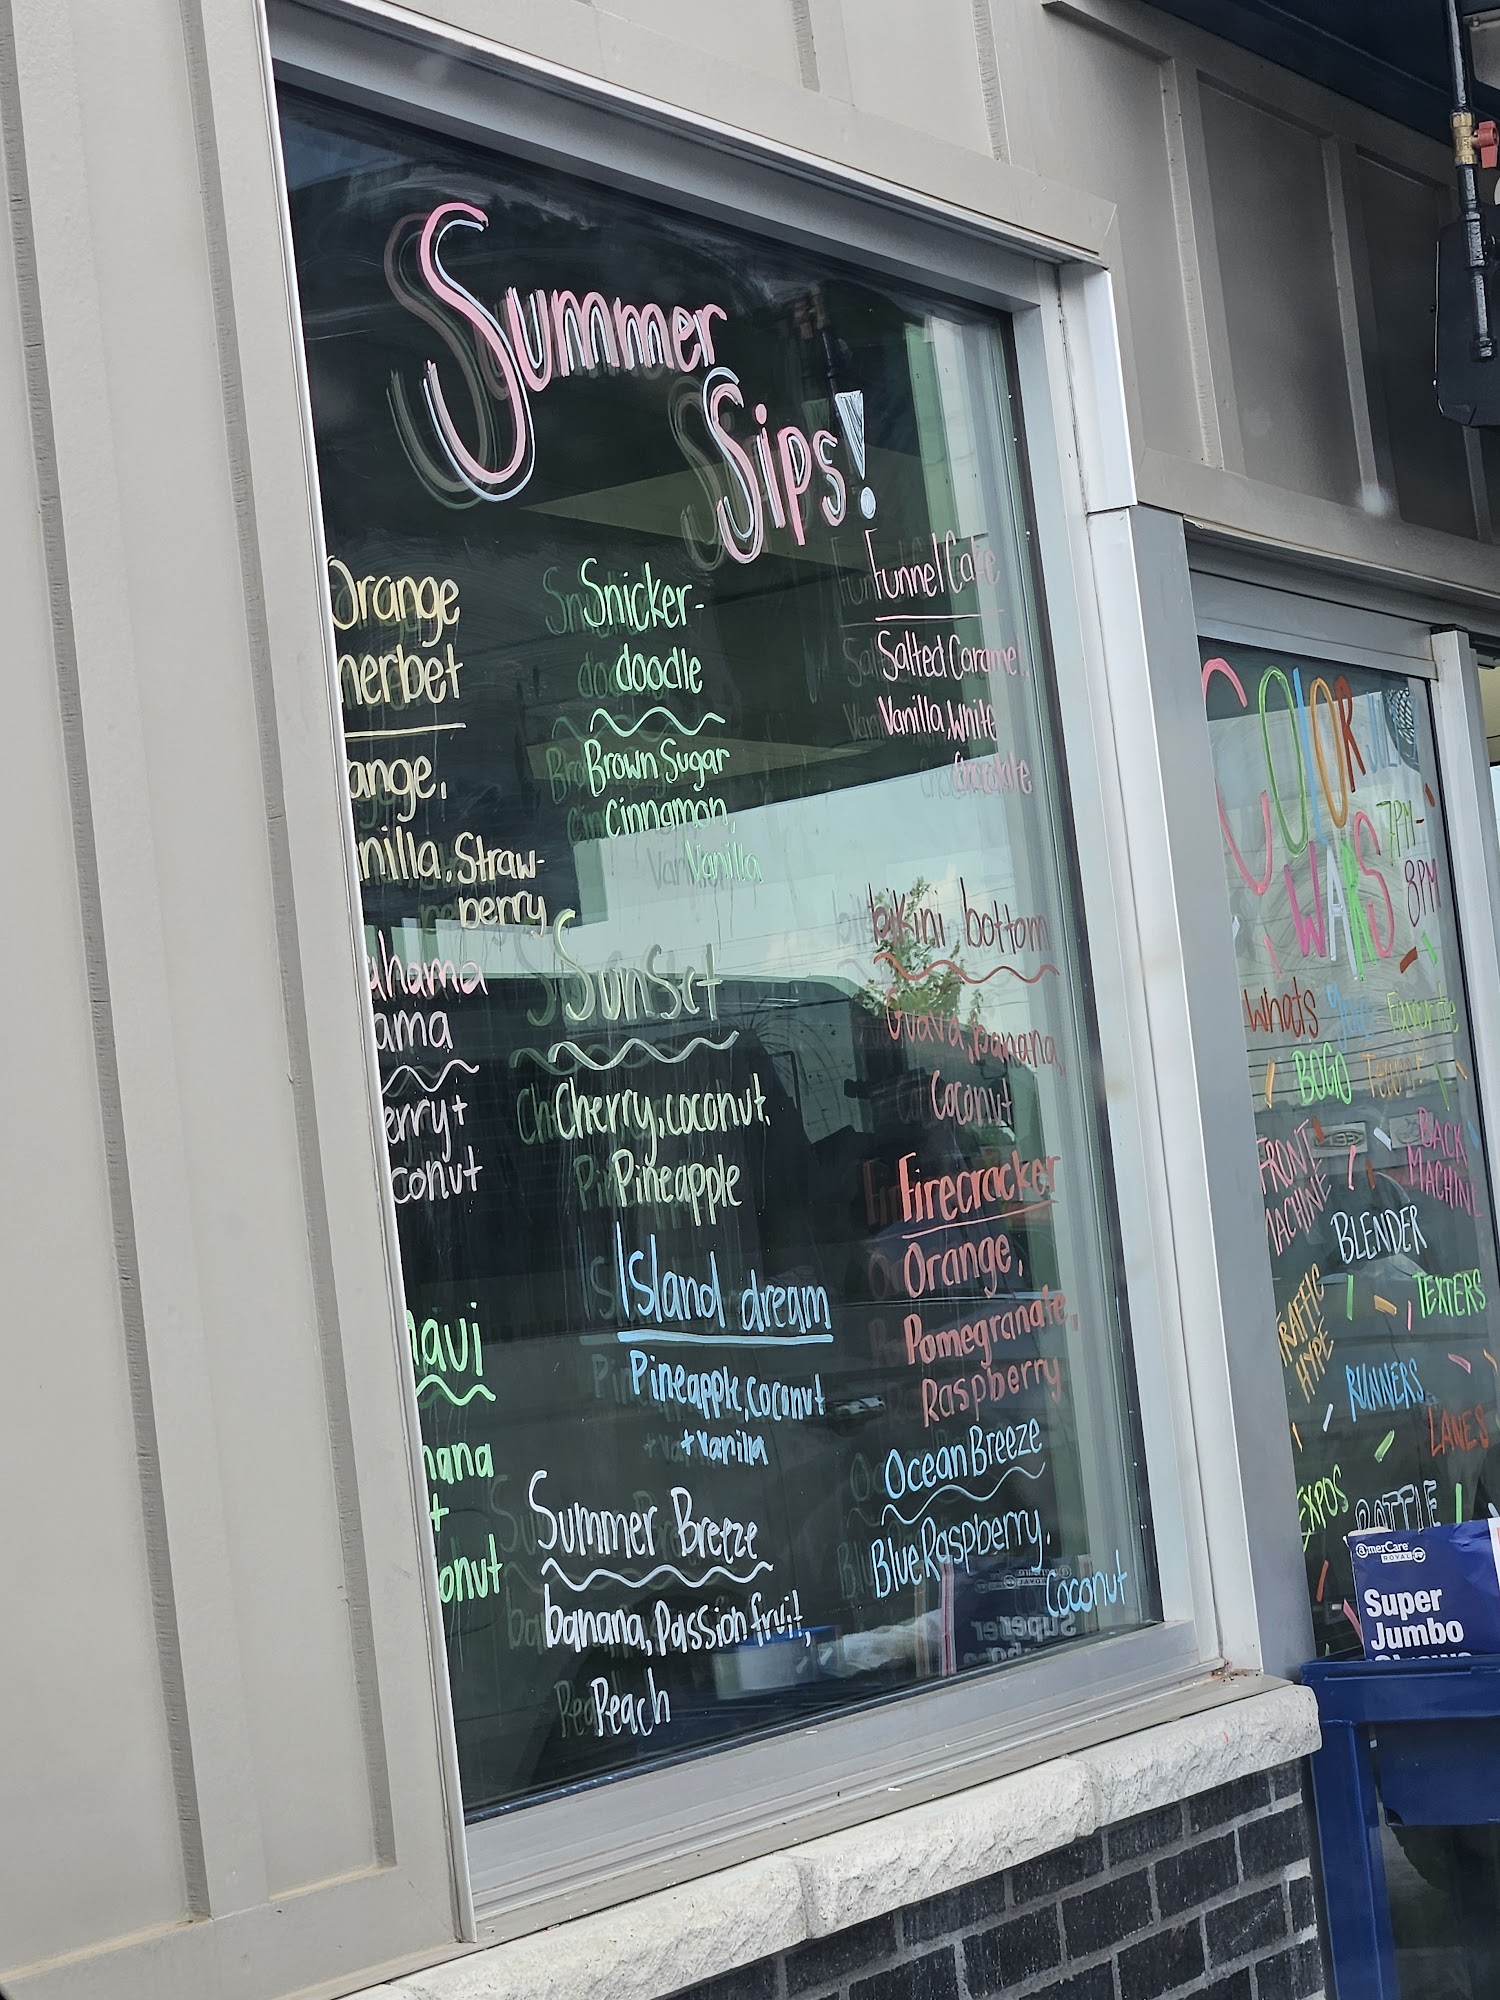 Summer
Sips!
Orange
herbet
ange,
nilla, Straw-
berry
ahama
ama
erry +
conut
aui
nana
+
onut
Snicker-
doodle
Brown Sugar
Cinnamon,
Vanilla
Sunset
Cherry, coconut,
Pineapple
Island dream
Pineapple, coconut
+ vanilla
Summer Breeze
banana, Passion fruit,
Peach
Funnel Cake
Salted Caramel,
Vanilla, White
chocolate
bikini bottom
Guava, banana,
Coconut
Firecracker
Orange,
Pomegranate,
Raspberry
Ocean Breeze
Blue Raspberry,
Coconut
COLOR
WARS
7PM-
8PM
Whats your Favorite
BOGO
FRONT
MACHINE
BACK
MACHINE
BLENDER
TRAFFIC
HYPE
TEXTERS
RUNNERS
LANES
EXPOS
BOTTLE
amerCare
ROYAL
Super
Jumbo